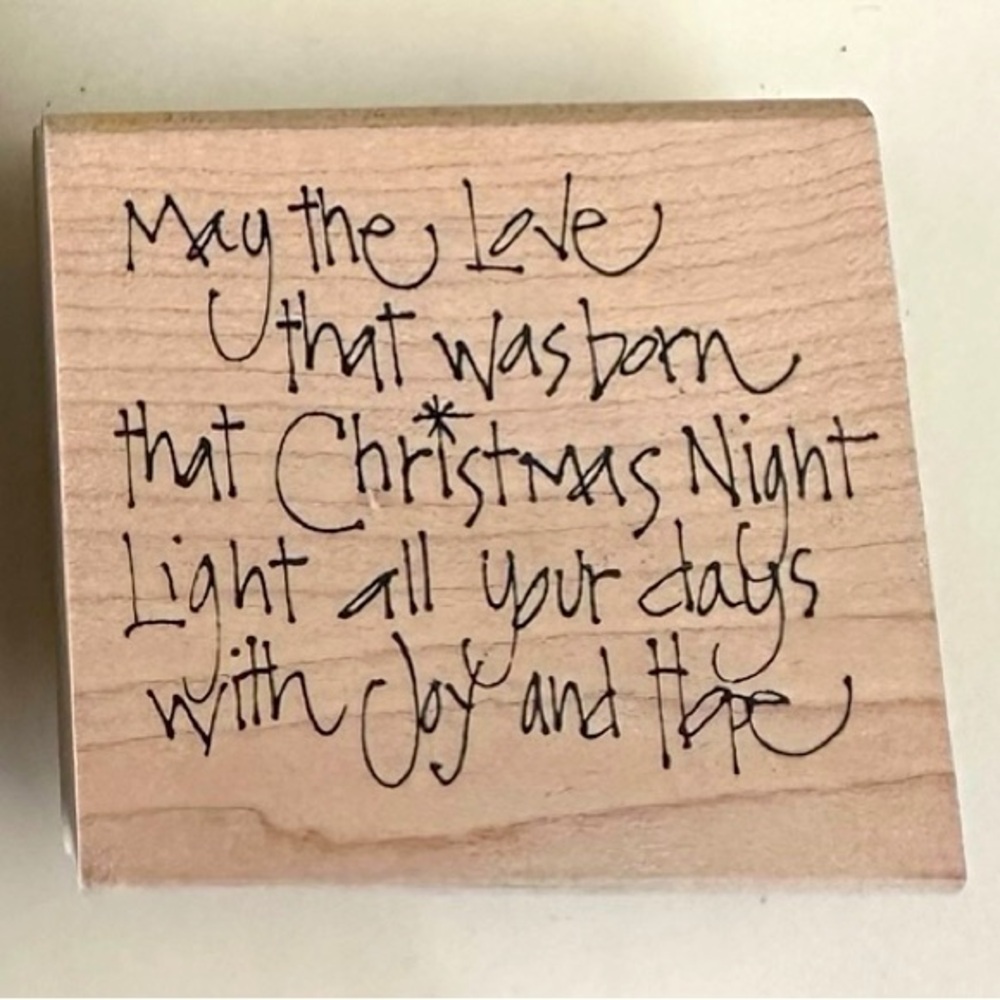 May the Love
that was born
that Christmas Night
Light all your days
with Joy and Hope